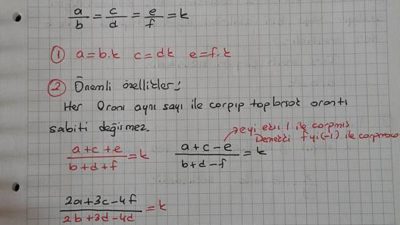 a/b = c/d = e/f = k
① a=b.k c=dk e=f.k
② Önemli özellikler;
Her Oranı aynı sayı ile çarpıp toplarsak orantı
sabiti değişmez.
(a+c+e)/(b+d+f) = k (a+c-e)/(b+d-f) = k
eyi eksi 1 ile çarpmış
Demekki f yi (-1) ile çarpmış
(2a+3c-4f)/(2b+3d-4d) = k